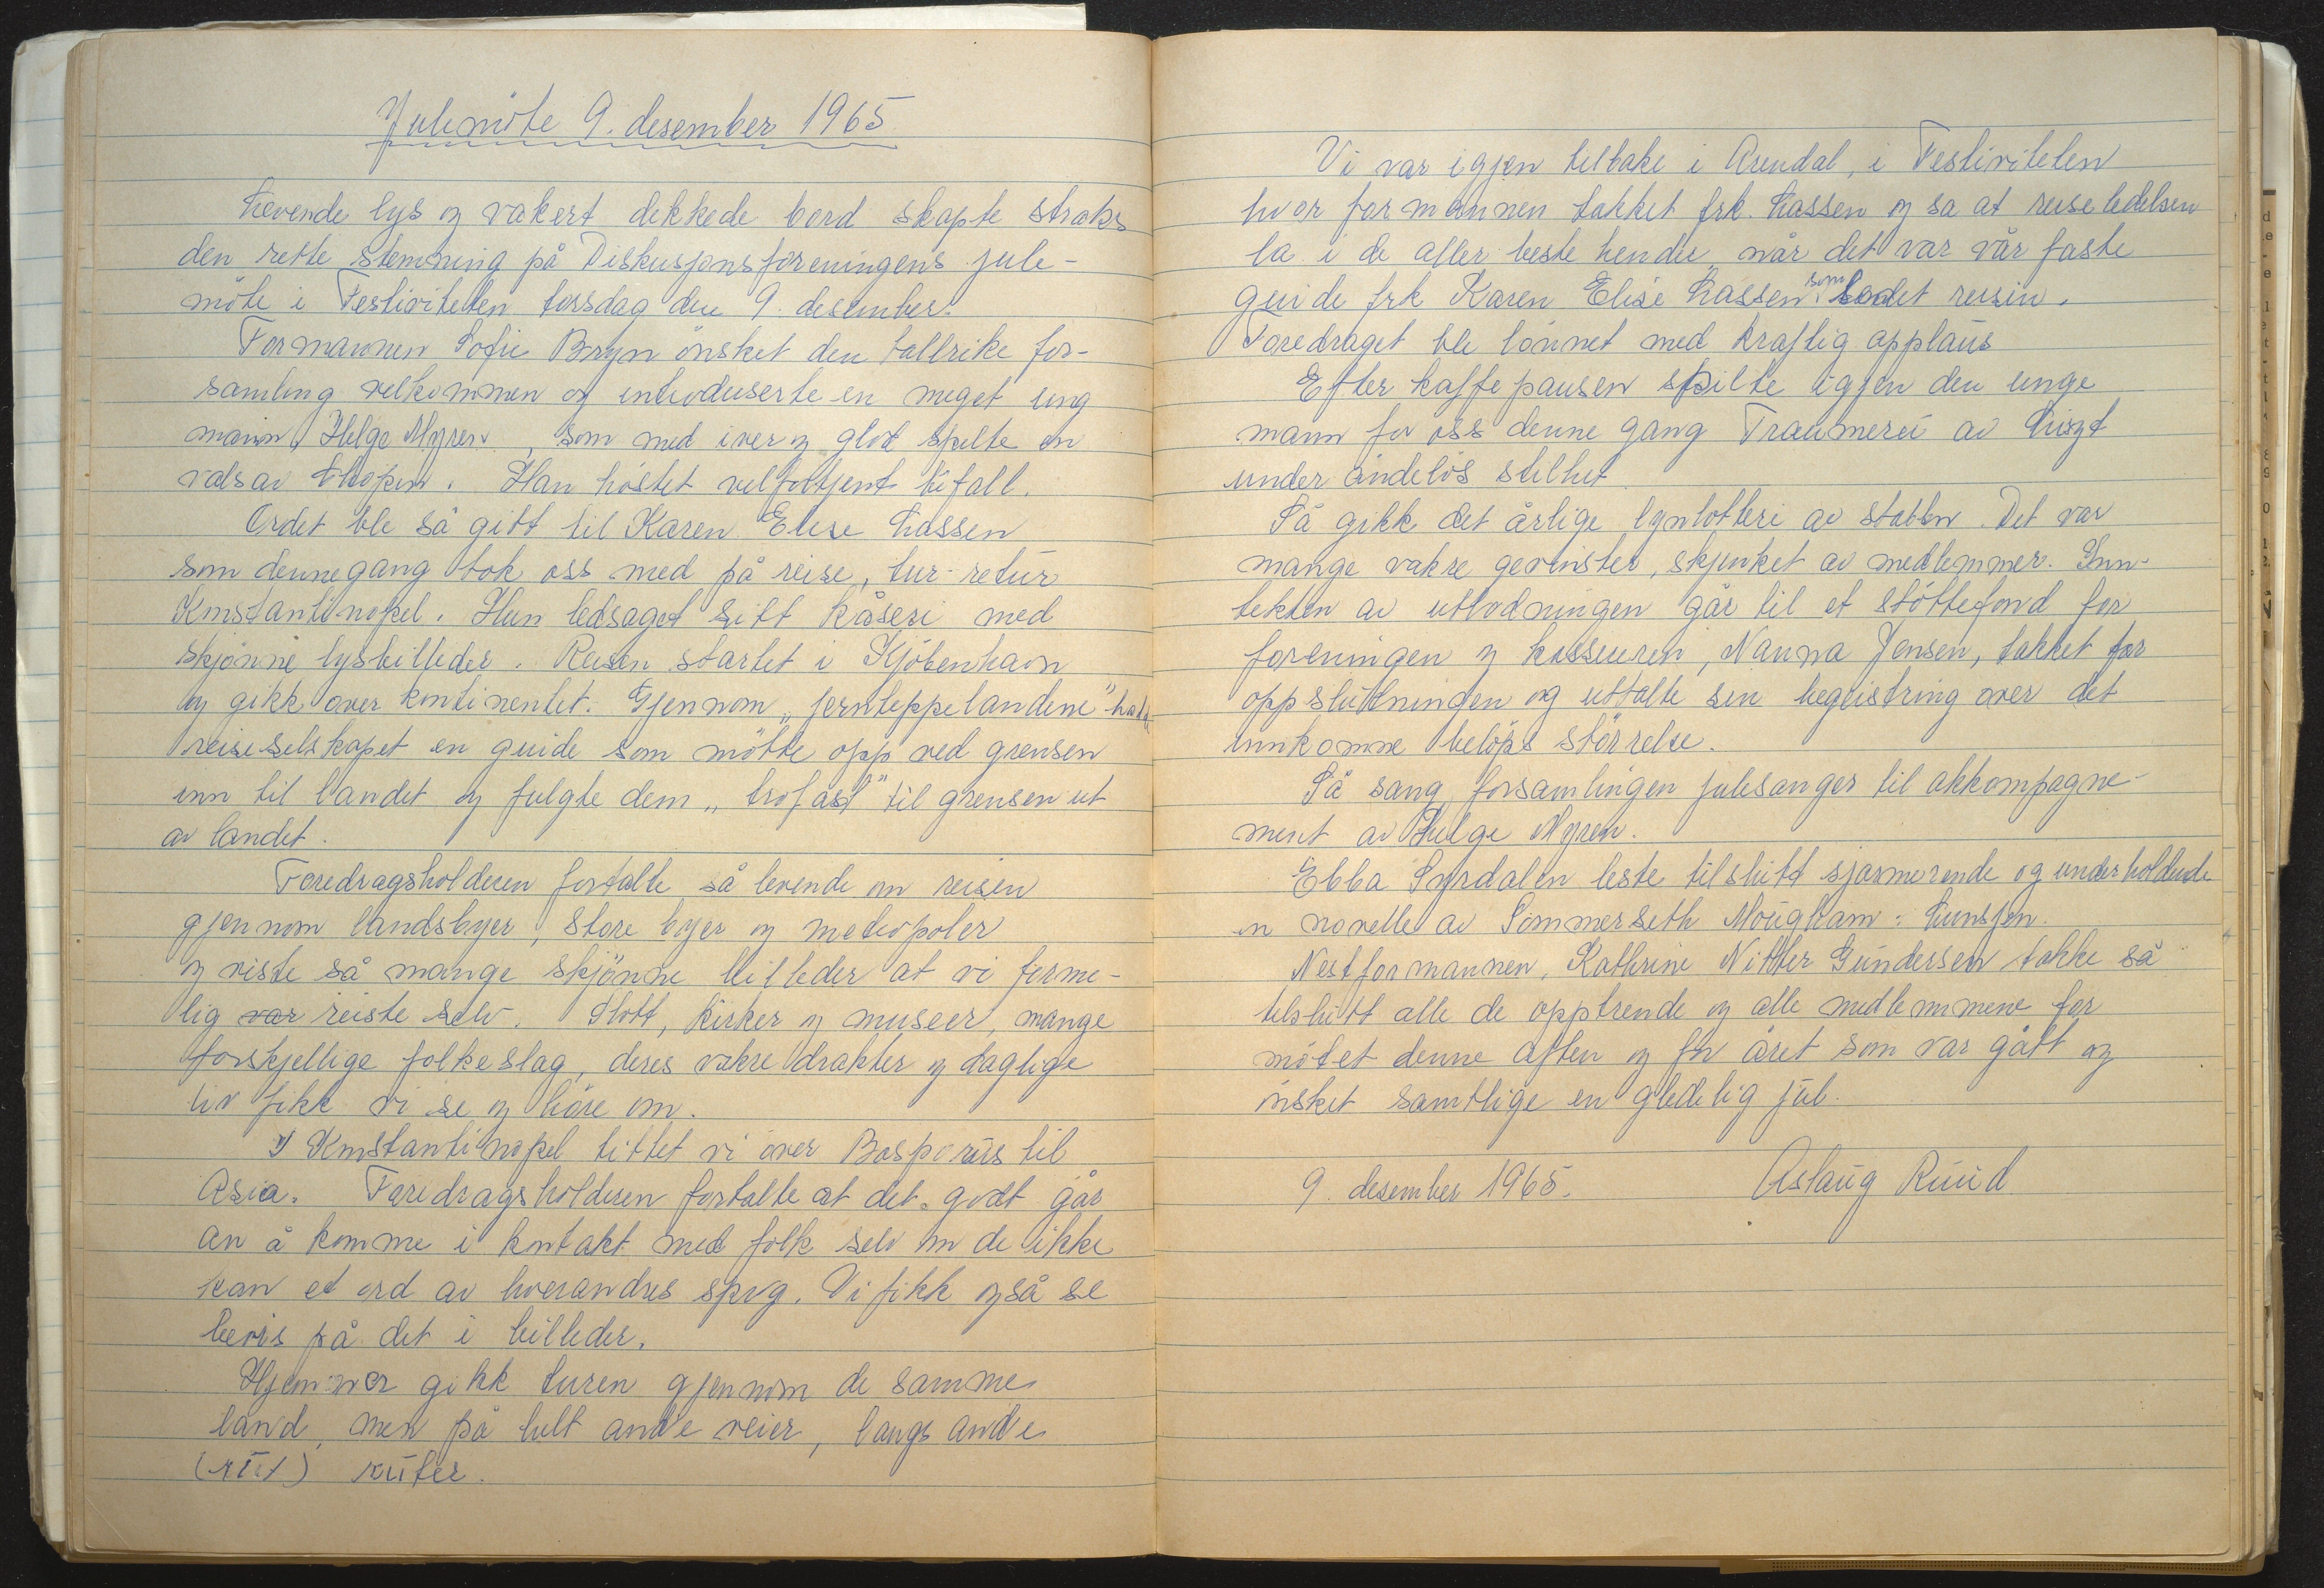 Julemöte 9. desember 1965
Levende lys og vakert dekkede bord skapte straks
den rette stemning på Diskusjonsforeningens jule-
möte i Festiviteten torsdag den 9. desember.
Formannen Sofie Bryn önsket den tallrike for-
samling velkommen og introduserte en meget ung
mann, Helge Myren, som med iver og glöd spilte en
vals av Chopin. Han höstet velfortjent bifall.
Ordet ble så gitt til Karen Elise Lassen
som denne gang tok oss med på reise, tur-retur
Konstantinopel. Hun ledsaget sitt kåseri med
skjönne lysbilleder. Reisen startet i Kjöbenhavn
og gikk over kontinentet. Gjennom „jernteppelandene" hadde
reiseselskapet en guide som mötte opp ved grensen
inn til landet og fulgte dem „trofast" til grensen ut
av landet.
Foredragsholderen fortalte så levende om reisen
gjennom landsbyer, store byer og metropoler
og viste så mange skjönne billeder at vi forme-
lig var reiste selv. Slott, kirker og museer, mange
forskjellige folkeslag, deres vakre drakter og daglige
liv fikk vi se og höre om.
I Konstantinopel tittet vi over Bosporus til
Asia. Foredragsholderen fortalte at det godt går
an å komme i kontakt med folk selv om de ikke
kan et ord av hverandres sprog. Vi fikk også se
bevis på det i billeder.
Hjemover gikk turen gjennom de samme
land, men på helt andre veier, langs andre
ruter.
Vi var igjen tilbake i Arendal, i Festiviteten
hvor formannen takket frk. Lassen og sa at reiseledelsen
la i de aller beste hender når det var vår faste
guide frk Karen Elise Lassen som ledet reisen.
Foredraget ble lönnet med kraftig applaus
Efter kaffepausen spilte igjen den unge
mann for oss denne gang Traumerei av Liszt
under åndelös stillhet.
Så gikk det årlige lynlotteri av stabben. Det var
mange vakre gevinster, skjenket av medlemmer. Inn-
tekten av utlodningen går til et stöttefond for
foreningen og kassereren, Nanna Jensen, takket for
oppslutningen og uttalte sin begeistring over det
innkomne belöps störrelse.
Så sang forsamlingen julesanger til akkompagne-
ment av Helge Myren.
Ebba Syrdalen leste tilslutt sjarmerende og underholdende
en novelle av Sommerseth Mougham: Lunsjen.
Nestformannen, Kathrine Nitter Gundersen takke så
tilslutt alle de opptrende og alle medlemmene for
mötet denne aften og for året som var gått og
önsket samtlige en gledelig jul.
9. desember 1965. Aslaug Ruud